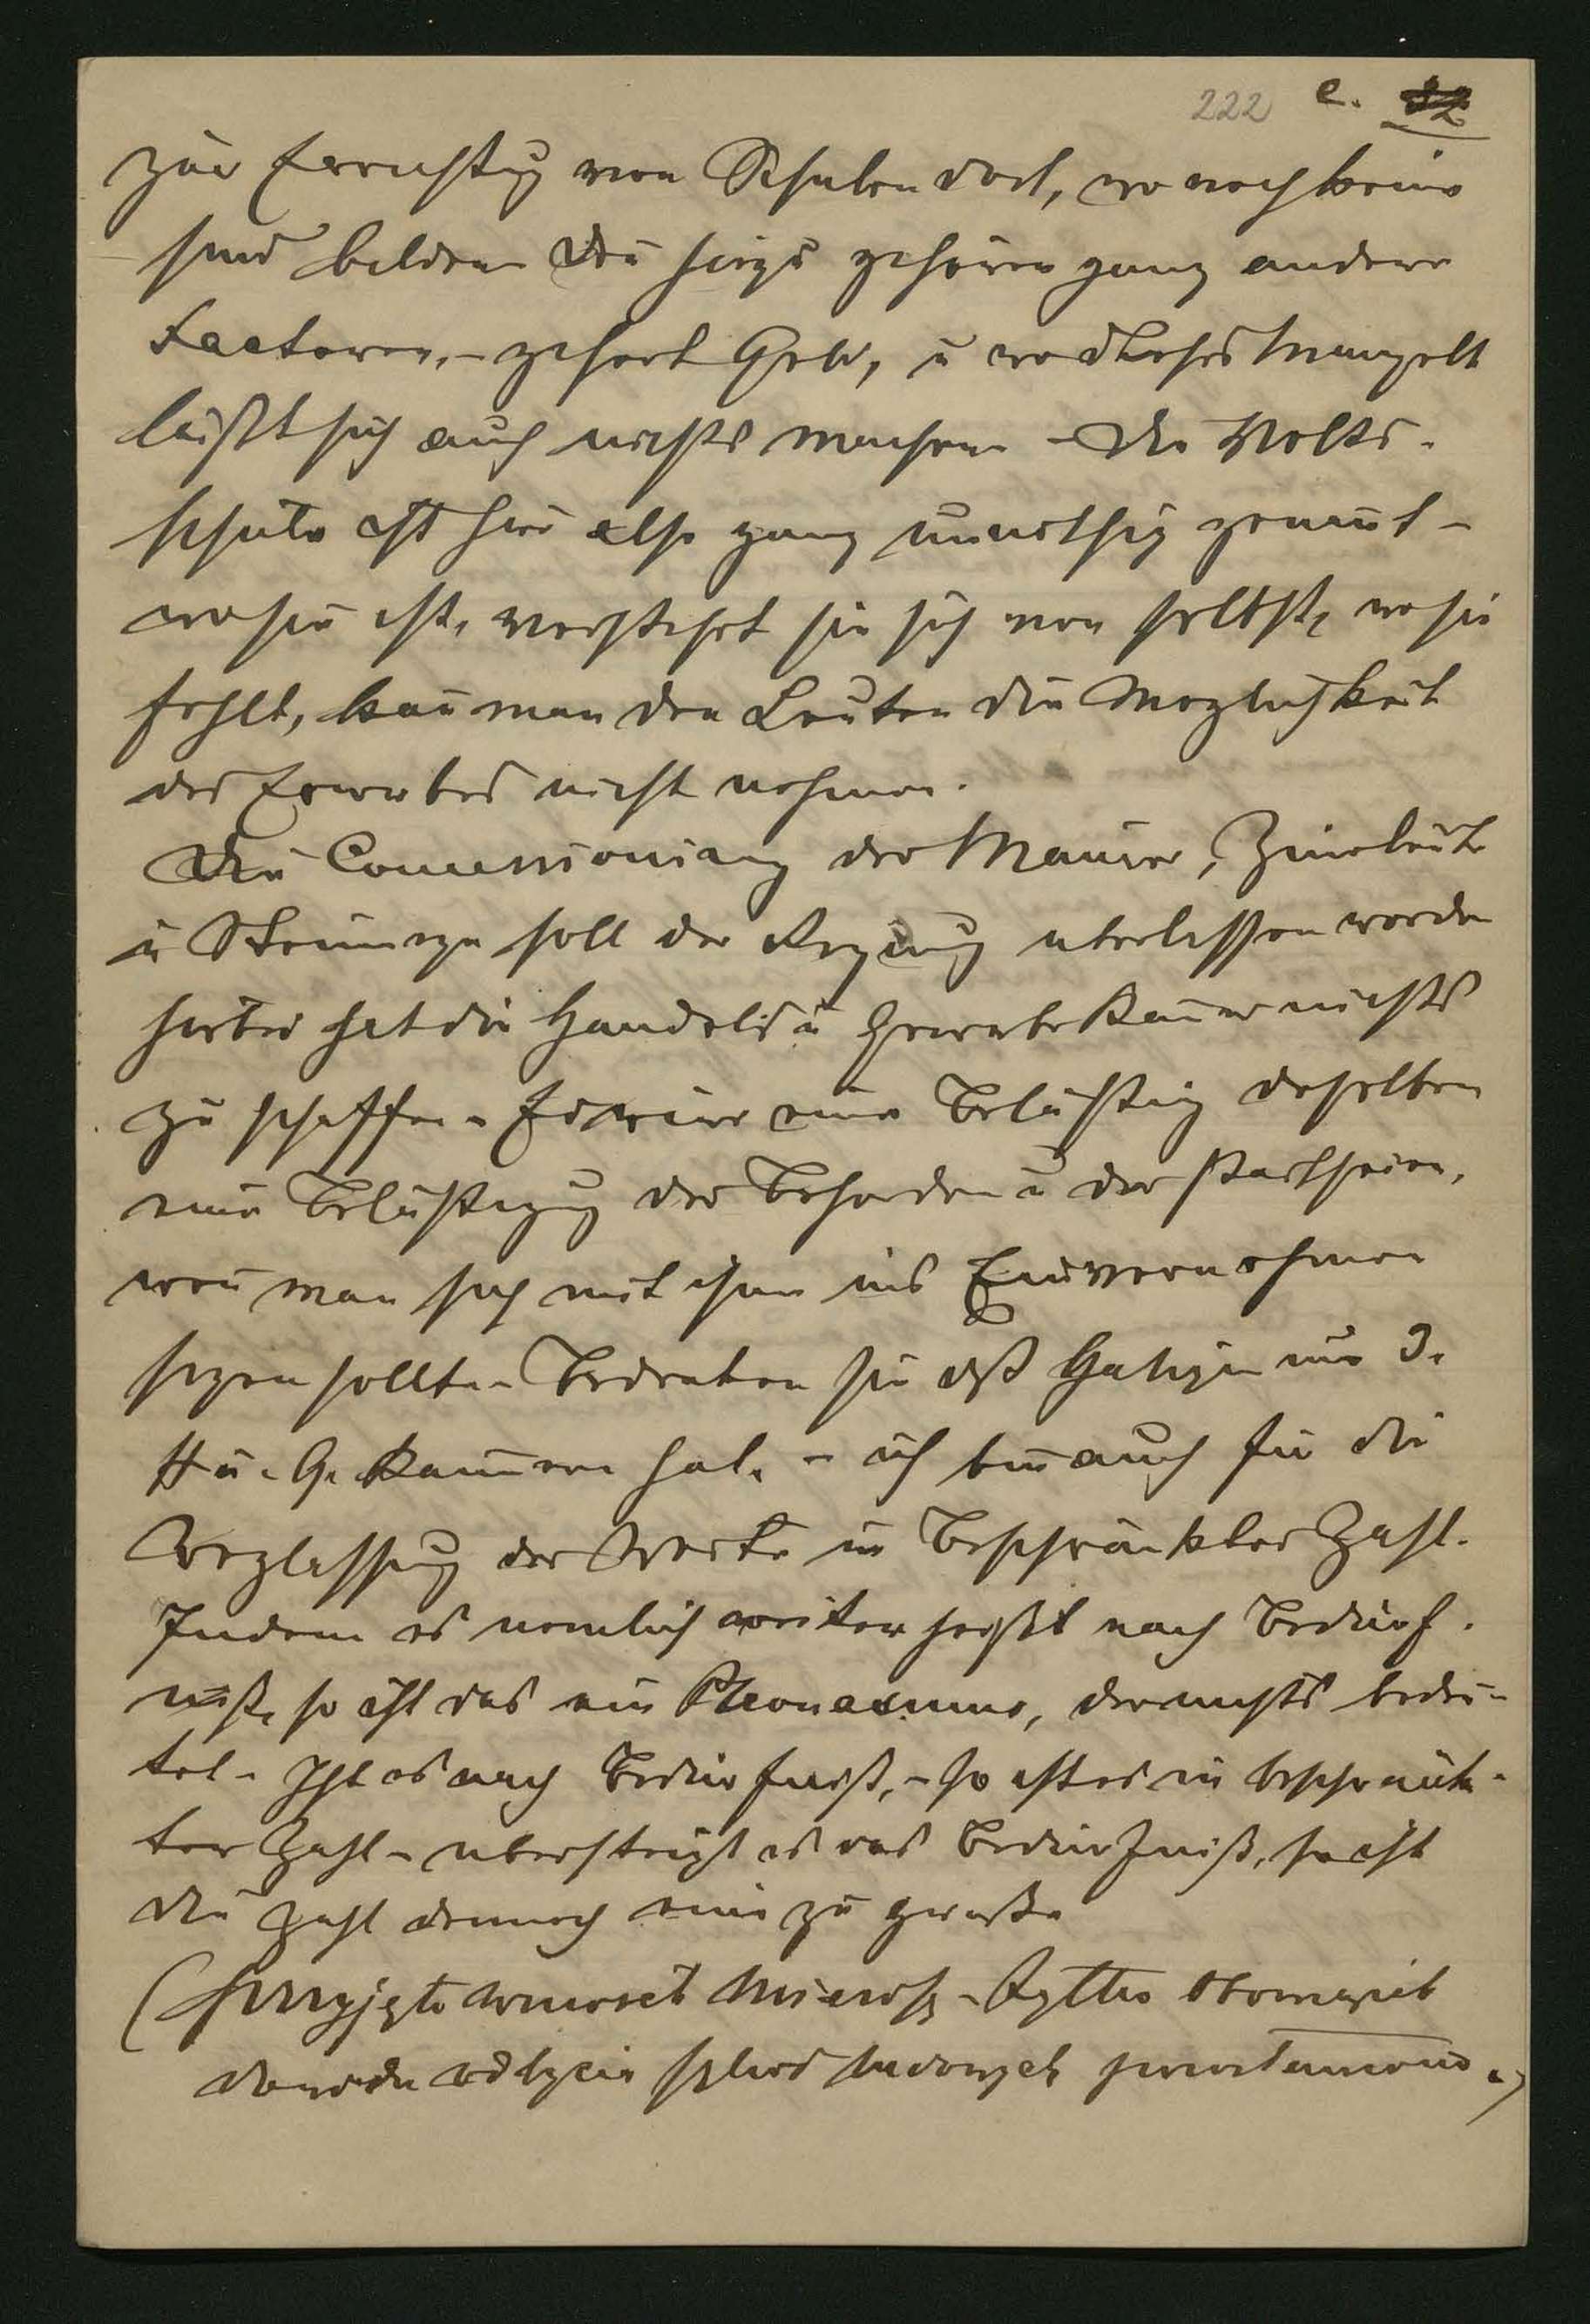 222 e.
zur Errichtg von Schulen dort, wo noch keine
sind bilden die hiezu gehören ganz andere
Factoren, - gehört Geld, u wo dieses mangelt
läßt sich auch nichts machen - Die Volks-
schule ist hier also ganz unnöthig genannt -
wo sie ist, versteht sie sich von selbst, wo sie
fehlt, kan̄ man den Leuten die Möglichkeit
des Erwerbes nicht nehmen.
Die Concessionirung der Maurer, Zim̄erleute
u Steinmeze soll der Regirung überlassen werden
hierbei hat die Handels u Gewerbekam̄er nichts
zu schaffen - Es wäre eine Belästig derselben
eine Belästigung der Behörden u der Partheien,
wen̄ man sich mit ihnen ins Einvernehmen
sezen sollte - Bedenken Sie daß Galizien nur 3.
H u. G. Kam̄ern hat. - ich bin auch für die
Weglassung der Worte in beschränkter Zahl.
Indem es nemlich weiter heißt nach Bedürf-
niß, so ist das ein Pleonasmus, der nichts bedeu-
tet - Ist es nach Bedürfniß, - so ist es in beschränk-
ter Zahl - übersteigt es das Bedürfniß, so ist
die Zahl dennoch eine zu große
(Przyjęto wniosek
dowodu odbycia szkół ludowych